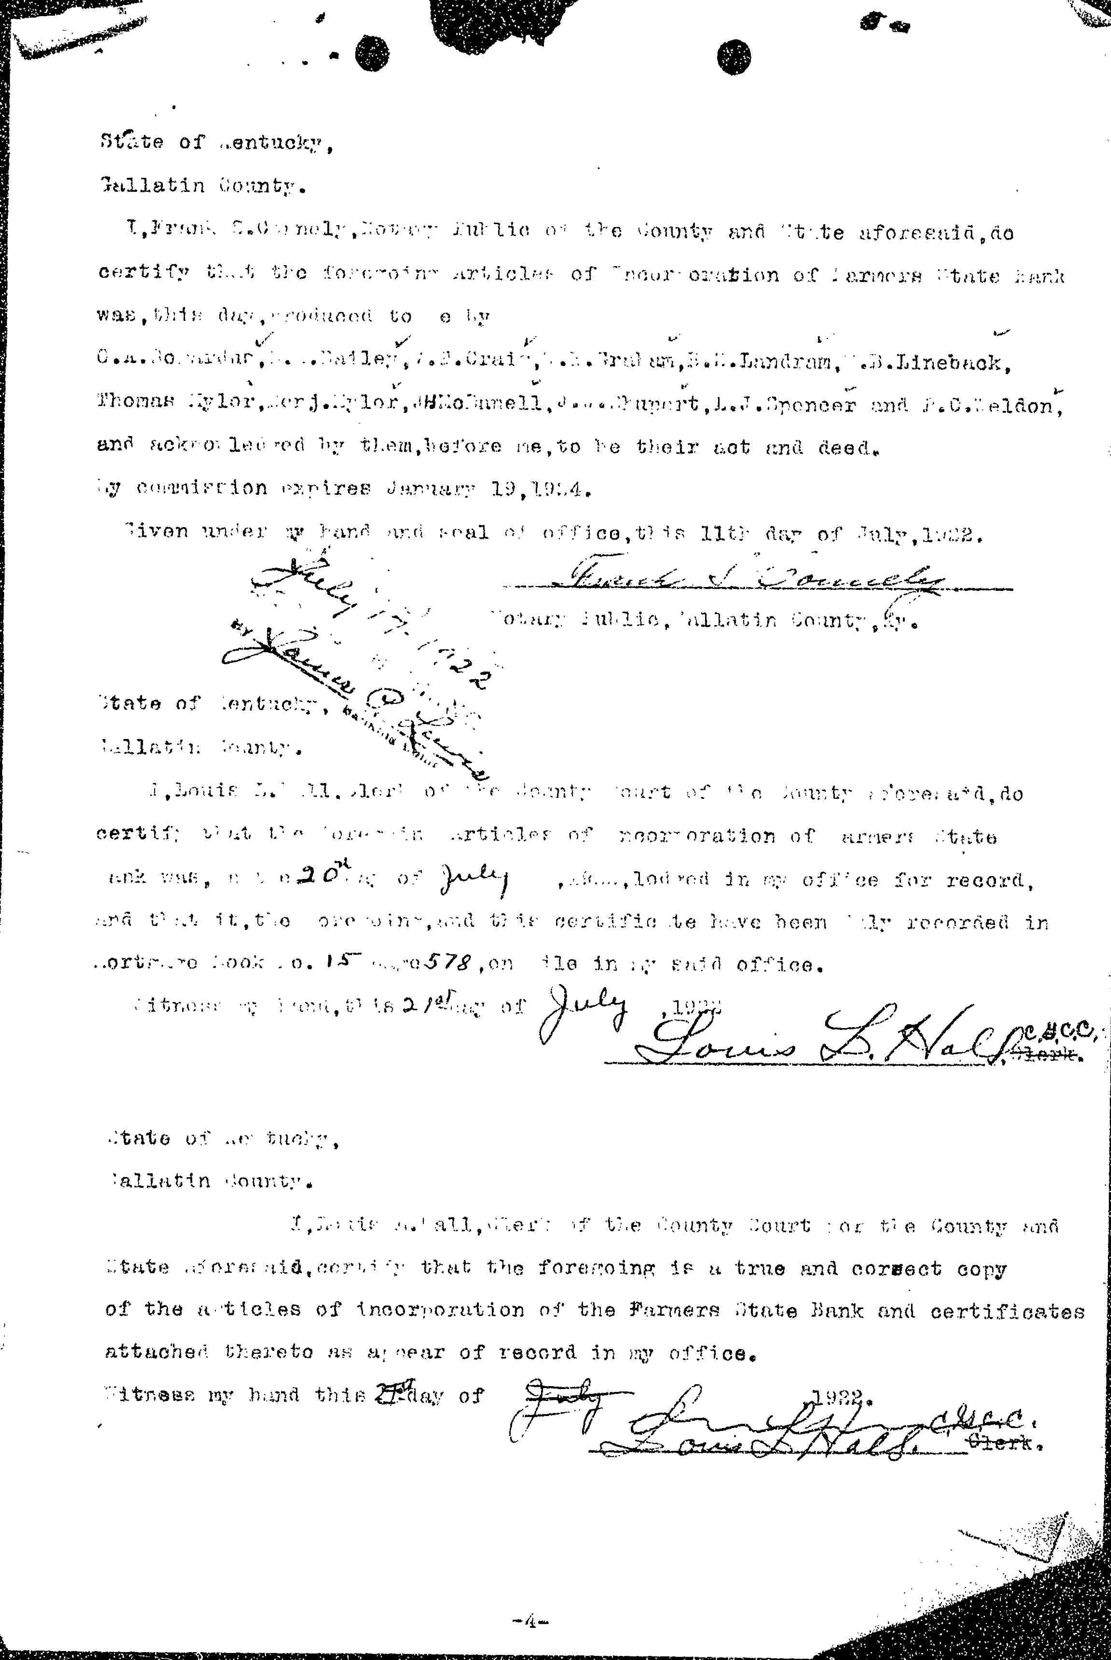 State of Kentucky,
Gallatin County.
I, Frank S. Connely, Notary Public of the County and State aforesaid, do
certify that the foregoing Articles of Incorporation of Farmers State Bank
was, this day, produced to me by
Bailey, Craig, Graham, Landram, Lineback,
Thomas Kylor, Benj. Kylor, J H McDannell, Shupert, L.J. Spencer and Weldon,
and acknowledged by them, before me, to be their act and deed.
My commission expires January 19, 1924.
Given under my hand and seal of office, this 11th day of July, 1922.
Frank S Connely
Notary Public, Gallatin County, Ky.
July 17-1922
BY James P Lewis
State of Kentucky,
Gallatin County.
I, Louis L. Hall, Clerk of the County Court of the County aforesaid, do
certify that the foregoing Articles of Incorporation of Farmers State
Bank was, on the 20 day of July, lodged in my office for record,
and that it, the foregoing, and this certificate have been duly recorded in
Mortgage Book No. 15 page 578, on file in my said office.
Witness my hand, this 21st day of July, 1922
Louis L. Hall, C.G.C.C.
Clerk.
State of Kentucky,
Gallatin County.
I, Louis Hall, Clerk of the County Court for the County and
State aforesaid, certify that the foregoing is a true and correct copy
of the articles of incorporation of the Farmers State Bank and certificates
attached thereto as appear of record in my office.
Witness my hand this 21st day of July 1922.
C.G.C.C.
Louis L Hall. Clerk.
-4-